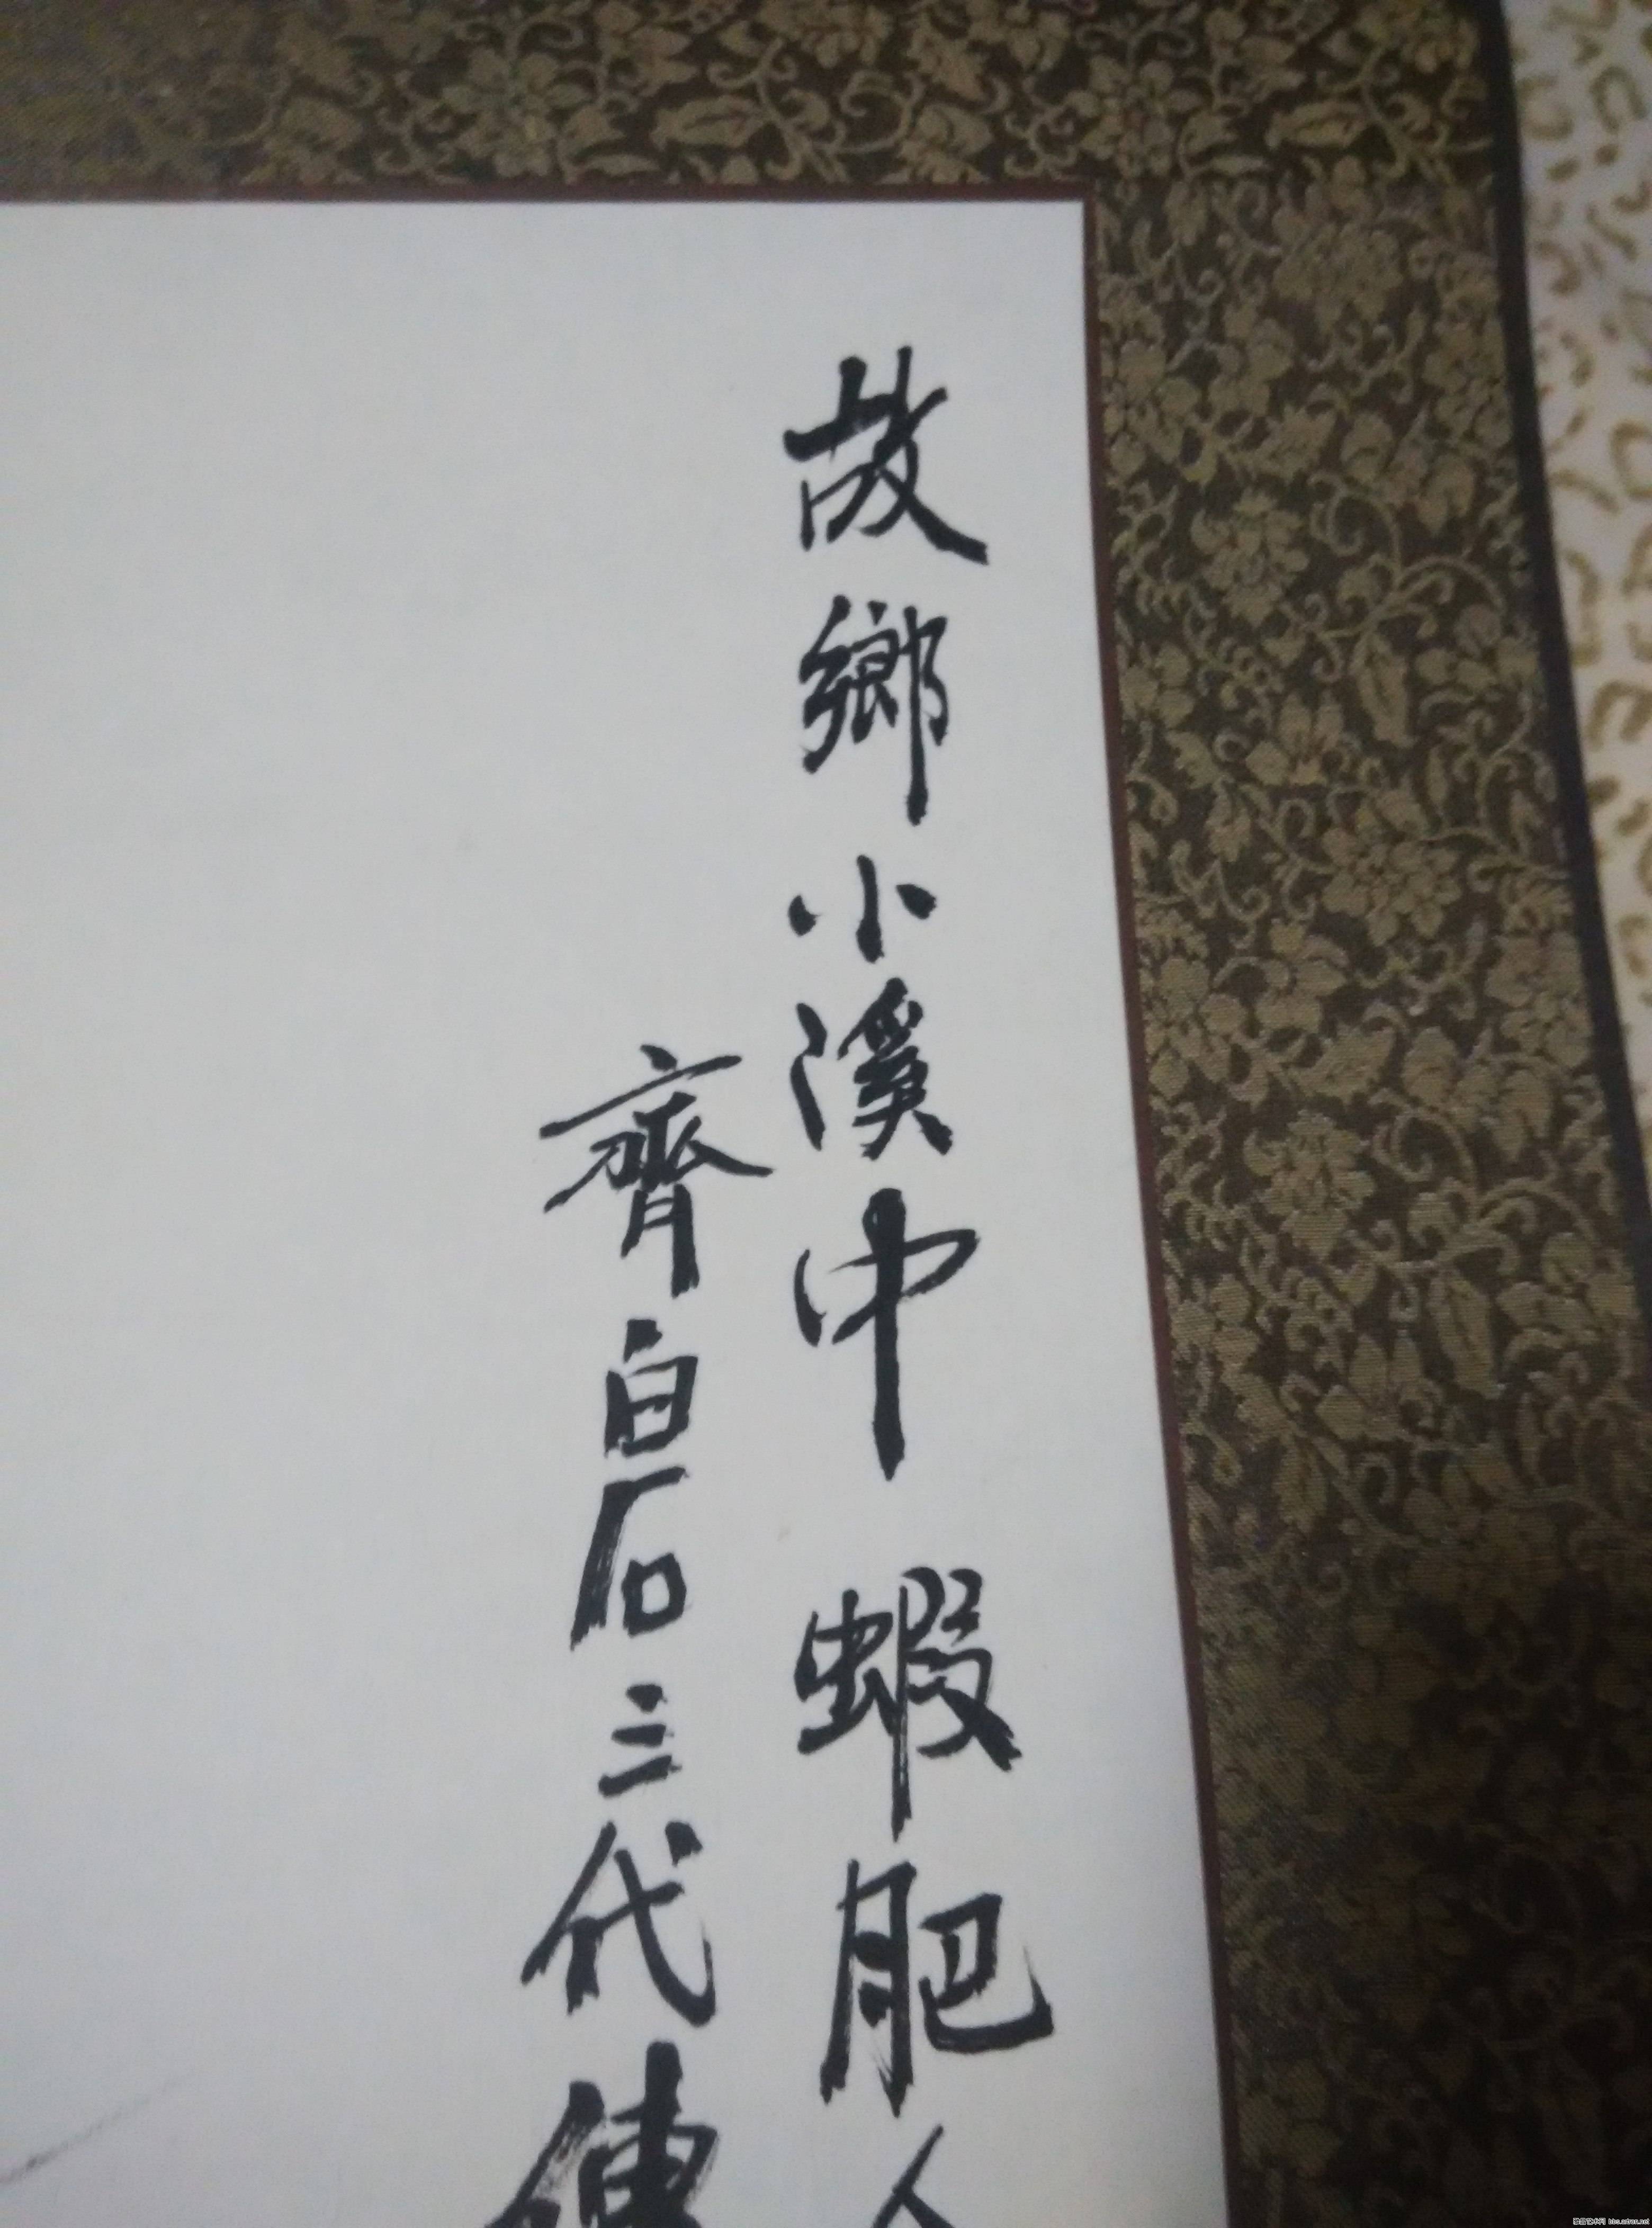 故鄉小溪中蝦肥人
齊白石三代傳